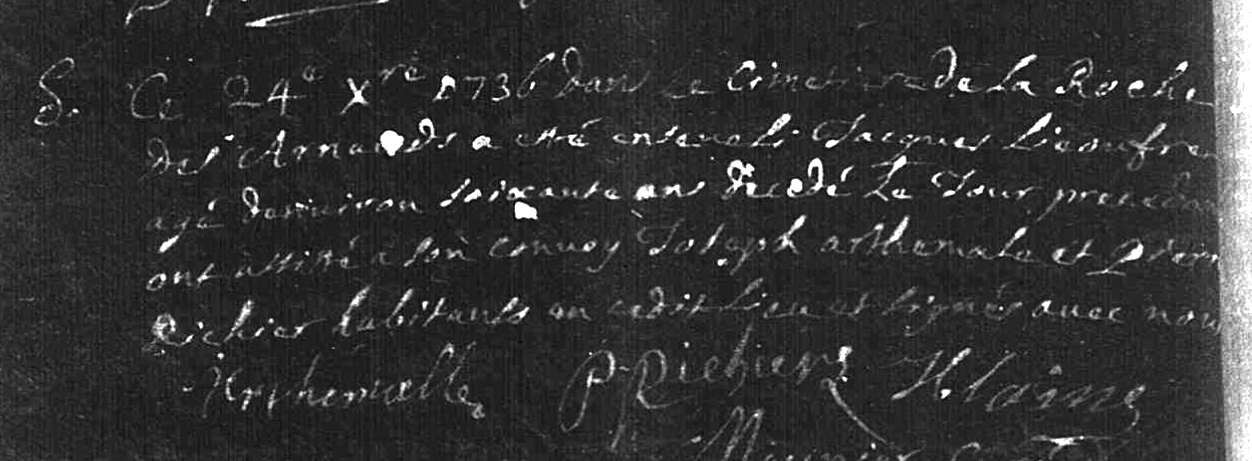 S. Ce 24e Xre 1736 dans le Cimetiere de la Roche
des Arnauds a esté enseveli Jacques
agé denviron soixante ans decedé Le Jour preceden
ont assisté a son convoy Joseph arthemale et pierre
Richier habitants au cedit lieu et signés avec nous
P Richiere H laine